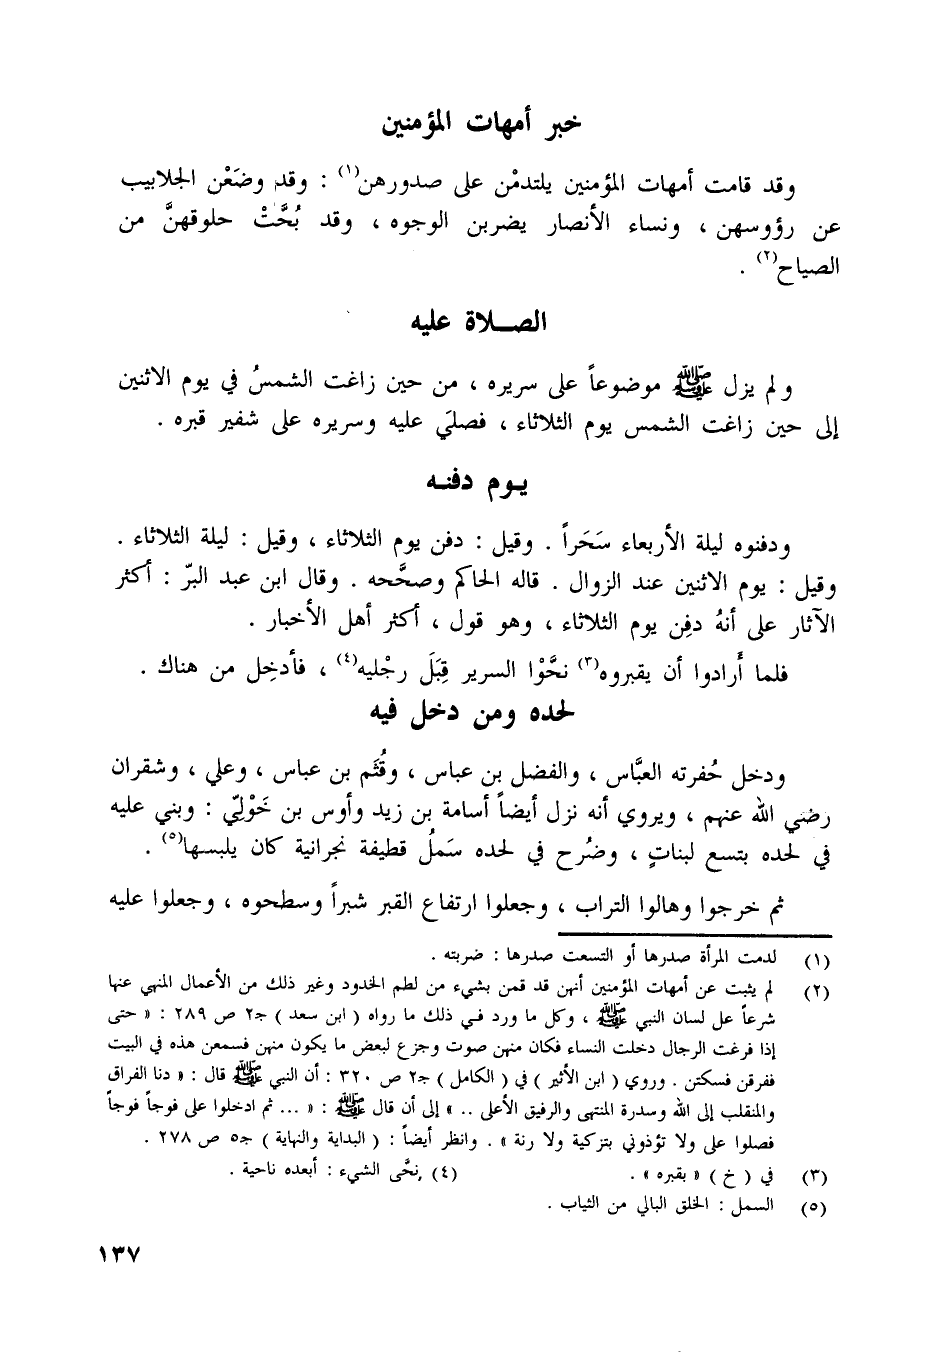 خبر أمهات المؤمنين
وقد قامت أمهات المؤمنين يلتدمْن على صدورهن(١) : وقد وضَعْن الجلابيب
عن رؤوسهن ، ونساء الأنصار يضربن الوجوه ، وقد بُحَّتْ حلوقهنَّ من
الصياح(٢) .
الصـلاة عليه
ولم يزل ﷺ موضوعاً على سريره ، من حين زاغت الشمسُ في يوم الاثنين
إلى حين زاغت الشمس يوم الثلاثاء ، فصليَ عليه وسريره على شفير قبره .
يـوم دفنـه
ودفنوه ليلة الأربعاء سَحَراً . وقيل : دفن يوم الثلاثاء ، وقيل : ليلة الثلاثاء .
وقيل : يوم الاثنين عند الزوال . قاله الحاكم وصحَّحه . وقال ابن عبد البرّ : أكثر
الآثار على أنهُ دفِن يوم الثلاثاء ، وهو قول ، أكثر أهل الأخبار .
فلما أَرادوا أن يقبروه(٣) نحَّوْا السرير قِبَلَ رجْليه(٤) ، فأدخِل من هناك .
لحده ومن دخل فيه
ودخل حُفرته العبَّاس ، والفضل بن عباس ، وقُثَم بن عباس ، وعلي ، وشقران
رضي الله عنهم ، ويروي أنه نزل أيضاً أسامة بن زيد وأوس بن خَوْليّ : وبني عليه
في لحده بتسع لبناتٍ ، وضُرح في لحده سَملُ قطيفة نجرانية كان يلبسها(٥) .
ثم خرجوا وهالوا التراب ، وجعلوا ارتفاع القبر شبراً وسطحوه ، وجعلوا عليه
(١) لدمت المرأة صدرها أو التسعت صدرها : ضربته .
(٢) لم يثبت عن أمهات المؤمنين أنهن قد قمن بشيء من لطم الخدود وغير ذلك من الأعمال المنهي عنها
شرعاً عل لسان النبي ﷺ ، وكل ما ورد في ذلك ما رواه ( ابن سعد ) جـ٢ ص ٢٨٩ : « حتى
إذا فرغت الرجال دخلت النساء فكان منهن صوت وجزع لبعض ما يكون منهن فسمعن هذه في البيت
ففرقن فسكتن . وروي ( ابن الأثير ) في ( الكامل ) جـ٢ ص ٣٢٠ : أن النبي ﷺ قال : « دنا الفراق
والمنقلب إلى الله وسدرة المنتهى والرفيق الأعلى .. » إلى أن قال ﷺ : « ... ثم ادخلوا على فوجاً فوجاً
فصلوا على ولا تؤذوني بتزكية ولا رنة » . وانظر أيضاً : ( البداية والنهاية ) جـ٥ ص ٢٧٨ .
(٣) في ( خ ) « بقبره » . (٤) نحَّى الشيء : أبعده ناحية .
(٥) السمل : الخلق البالي من الثياب .
١٣٧